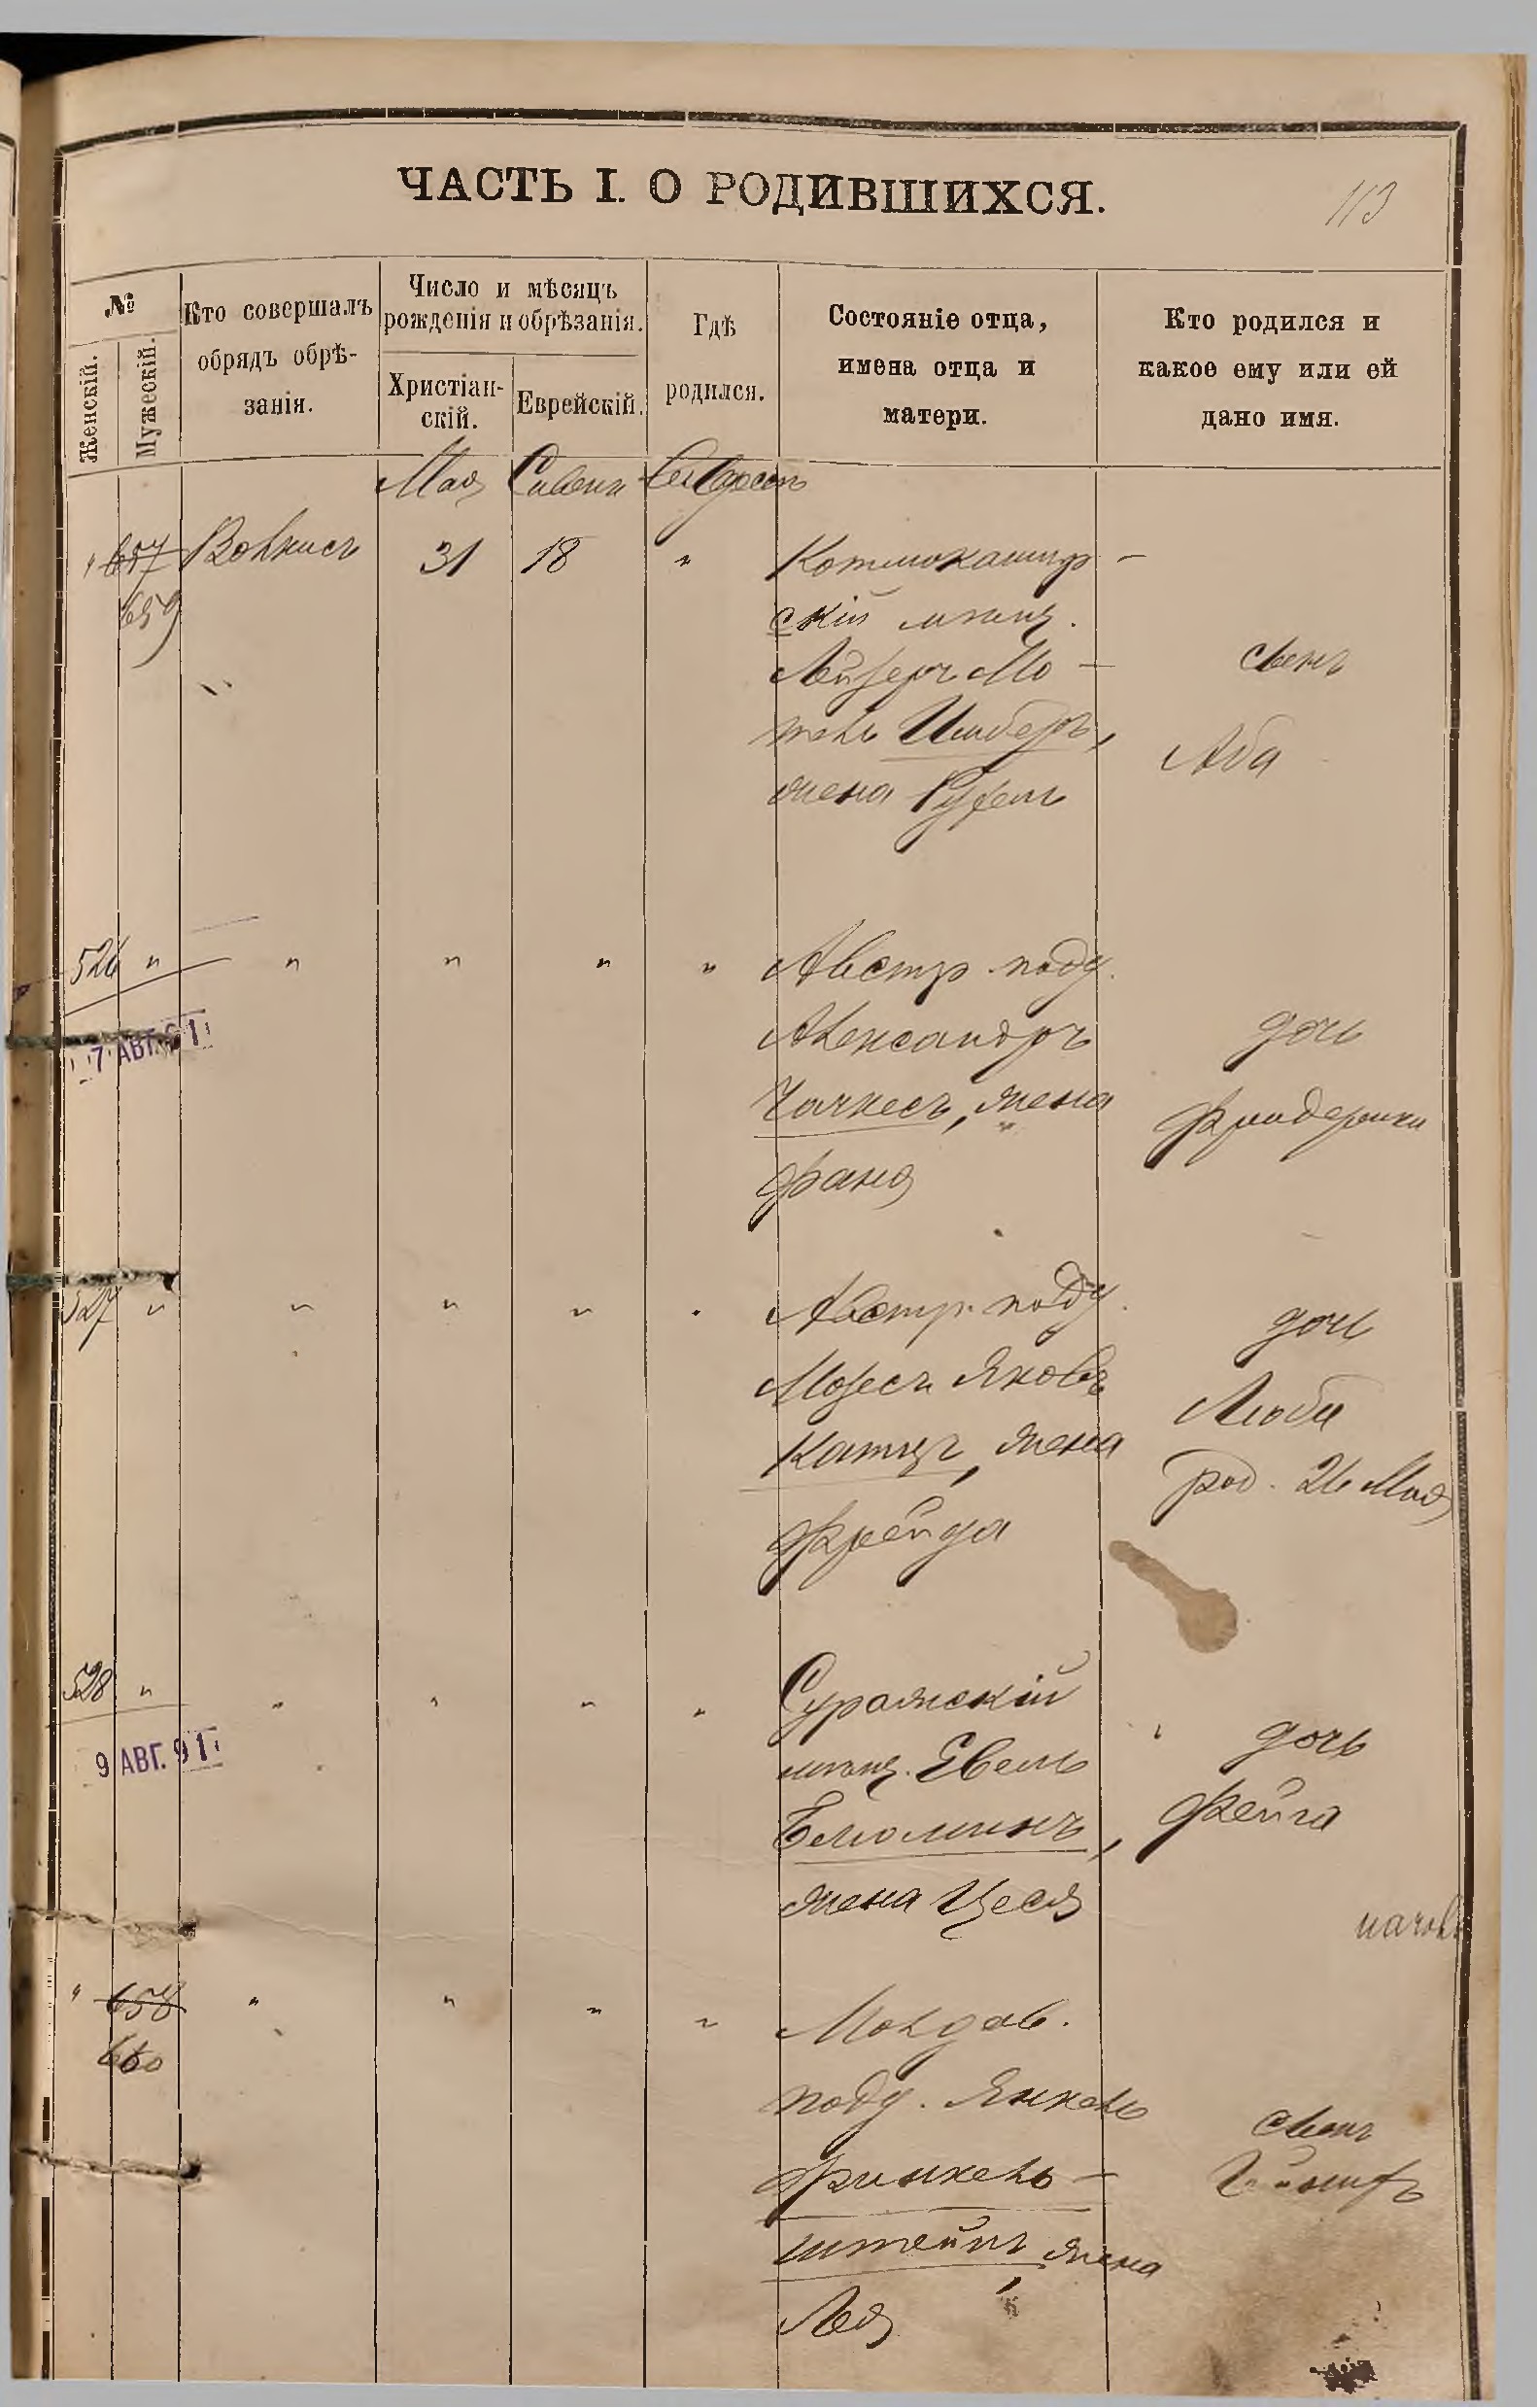 ЧАСТЬ I. О РОДИВШИХСЯ.
113
№
Женскій.
Мужескій.
Кто совершалъ
обрядъ обрѣ-
занія.
Число и мѣсяцъ
рожденія и обрѣзанія.
Христіан-
скій.
Еврейскій.
Гдѣ
родился.
Состояніе отца,
имена отца и
матери.
Кто родился и
какое ему или ей
дано имя.
Мая Сивень
" 657 Волкисъ 31 18 "
659
скій мѣщ.
Лейзеръ Мо-
тель Имберъ,
жена Рухель
сынъ
Аба
526 " " " " "
7 АВГ. 91
Австр. подд.
Александръ
Чачкесъ, жена
Фаня
дочь
Фридерика
527 " " " " "
Австр. подд.
Мозесъ Яковъ
Катцъ, жена
Фрейда
дочь
Люба
род. 26 Мая
528 " " " " "
9 АВГ. 91
Суражскій
мѣщ. Евель
Блюминъ,
жена Цеся
дочь
Фейга
" 658 " " " "
660
Молдав.
подд. Янкель
Финкель-
штейнъ, жена
Лея
сынъ